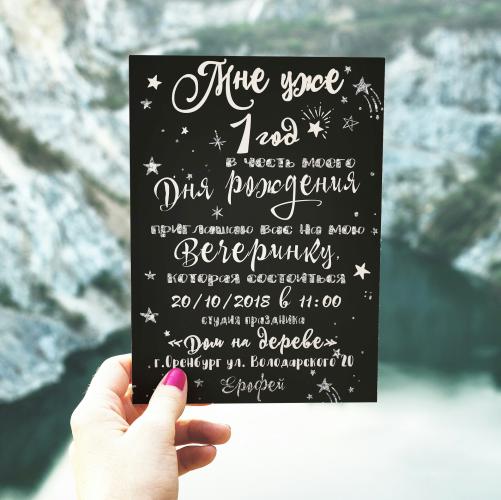 Мне уже
1 год
в честь моего
Дня рождения
приглашаю вас на мою
Вечеринку,
которая состоиться
20/10/2018 в 11:00
студия праздника
«Дом на дереве»
г.Оренбург ул. Володарского 20
Ерофей